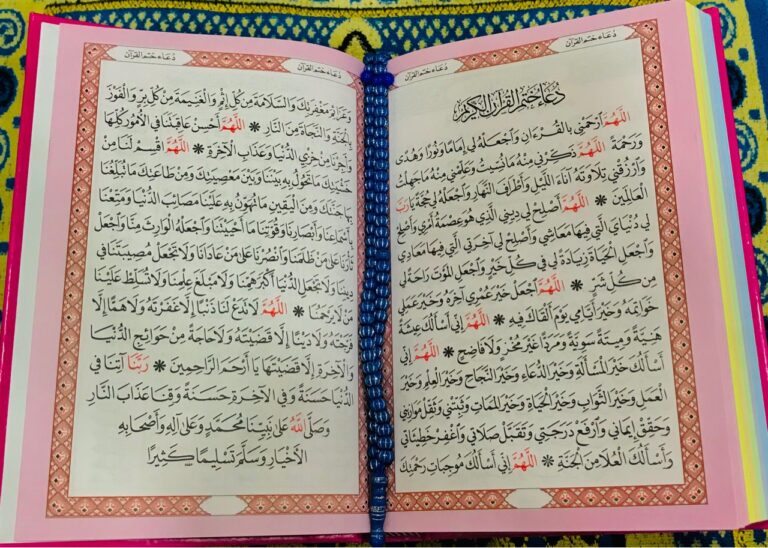 دُعَاء خَتْمِ القُرْآن
دُعَاء خَتْمِ القُرْآن
دُعَاءُ خَتْمِ القُرْآنِ الكَرِيمِ
اللَّهُمَّ ارْحَمْنِي بِالقُرْءَانِ وَاجْعَلْهُ لِي إِمَامًا وَنُورًا وَهُدًى
وَرَحْمَةً اللَّهُمَّ ذَكِّرْنِي مِنْهُ مَا نُسِّيتُ وَعَلِّمْنِي مِنْهُ مَا جَهِلْتُ
وَارْزُقْنِي تِلَاوَتَهُ آنَاءَ اللَّيْلِ وَأَطْرَافَ النَّهَارِ وَاجْعَلْهُ لِي حُجَّةً يَا رَبَّ
العَالَمِينَ * اللَّهُمَّ أَصْلِحْ لِي دِينِي الَّذِي هُوَ عِصْمَةُ أَمْرِي وَأَصْلِحْ
لِي دُنْيَايَ الَّتِي فِيهَا مَعَاشِي وَأَصْلِحْ لِي آخِرَتِي الَّتِي فِيهَا مَعَادِي
وَاجْعَلِ الحَيَاةَ زِيَادَةً لِي فِي كُلِّ خَيْرٍ وَاجْعَلِ المَوْتَ رَاحَةً لِي
مِنْ كُلِّ شَرٍّ * اللَّهُمَّ اجْعَلْ خَيْرَ عُمْرِي آخِرَهُ وَخَيْرَ عَمَلِي
خَوَاتِمَهُ وَخَيْرَ أَيَّامِي يَوْمَ أَلْقَاكَ فِيهِ * اللَّهُمَّ إِنِّي أَسْأَلُكَ عِيشَةً
هَنِيَّةً وَمِيتَةً سَوِيَّةً وَمَرَدًّا غَيْرَ مُخْزٍ وَلَا فَاضِحٍ * اللَّهُمَّ إِنِّي
أَسْأَلُكَ خَيْرَ المَسْأَلَةِ وَخَيْرَ الدُّعَاءِ وَخَيْرَ النَّجَاحِ وَخَيْرَ العِلْمِ وَخَيْرَ
العَمَلِ وَخَيْرَ الثَّوَابِ وَخَيْرَ الحَيَاةِ وَخَيْرَ المَمَاتِ وَثَبِّتْنِي وَثَقِّلْ مَوَازِينِي
وَحَقِّقْ إِيمَانِي وَارْفَعْ دَرَجَتِي وَتَقَبَّلْ صَلَاتِي وَاغْفِرْ خَطِيئَاتِي
وَأَسْأَلُكَ العُلَا مِنَ الجَنَّةِ * اللَّهُمَّ إِنِّي أَسْأَلُكَ مُوجِبَاتِ رَحْمَتِكَ
دُعَاء خَتْمِ القُرْآن
دُعَاء خَتْمِ القُرْآن
وَعَزَائِمَ مَغْفِرَتِكَ وَالسَّلَامَةَ مِنْ كُلِّ إِثْمٍ وَالغَنِيمَةَ مِنْ كُلِّ بِرٍّ وَالفَوْزَ
بِالجَنَّةِ وَالنَّجَاةَ مِنَ النَّارِ * اللَّهُمَّ أَحْسِنْ عَاقِبَتَنَا فِي الأُمُورِ كُلِّهَا
وَأَجِرْنَا مِنْ خِزْيِ الدُّنْيَا وَعَذَابِ الآخِرَةِ * اللَّهُمَّ اقْسِمْ لَنَا مِنْ
خَشْيَتِكَ مَا تَحُولُ بِهِ بَيْنَنَا وَبَيْنَ مَعْصِيَتِكَ وَمِنْ طَاعَتِكَ مَا تُبَلِّغُنَا
بِهَا جَنَّتَكَ وَمِنَ اليَقِينِ مَا تُهَوِّنُ بِهِ عَلَيْنَا مَصَائِبَ الدُّنْيَا وَمَتِّعْنَا
بِأَسْمَاعِنَا وَأَبْصَارِنَا وَقُوَّتِنَا مَا أَحْيَيْتَنَا وَاجْعَلْهُ الوَارِثَ مِنَّا وَاجْعَلْ
ثَأْرَنَا عَلَى مَنْ ظَلَمَنَا وَانْصُرْنَا عَلَى مَنْ عَادَانَا وَلَا تَجْعَلْ مُصِيبَتَنَا فِي
دِينِنَا وَلَا تَجْعَلِ الدُّنْيَا أَكْبَرَ هَمِّنَا وَلَا مَبْلَغَ عِلْمِنَا وَلَا تُسَلِّطْ عَلَيْنَا
مَنْ لَا يَرْحَمُنَا * اللَّهُمَّ لَا تَدَعْ لَنَا ذَنْبًا إِلَّا غَفَرْتَهُ وَلَا هَمًّا إِلَّا
فَرَّجْتَهُ وَلَا دَيْنًا إِلَّا قَضَيْتَهُ وَلَا حَاجَةً مِنْ حَوَائِجِ الدُّنْيَا
وَالآخِرَةِ إِلَّا قَضَيْتَهَا يَا أَرْحَمَ الرَّاحِمِينَ * رَبَّنَا آتِنَا فِي
الدُّنْيَا حَسَنَةً وَفِي الآخِرَةِ حَسَنَةً وَقِنَا عَذَابَ النَّارِ
وَصَلَّى اللَّهُ عَلَى نَبِيِّنَا مُحَمَّدٍ وَعَلَى آلِهِ وَأَصْحَابِهِ
الأَخْيَارِ وَسَلَّمَ تَسْلِيمًا كَثِيرًا